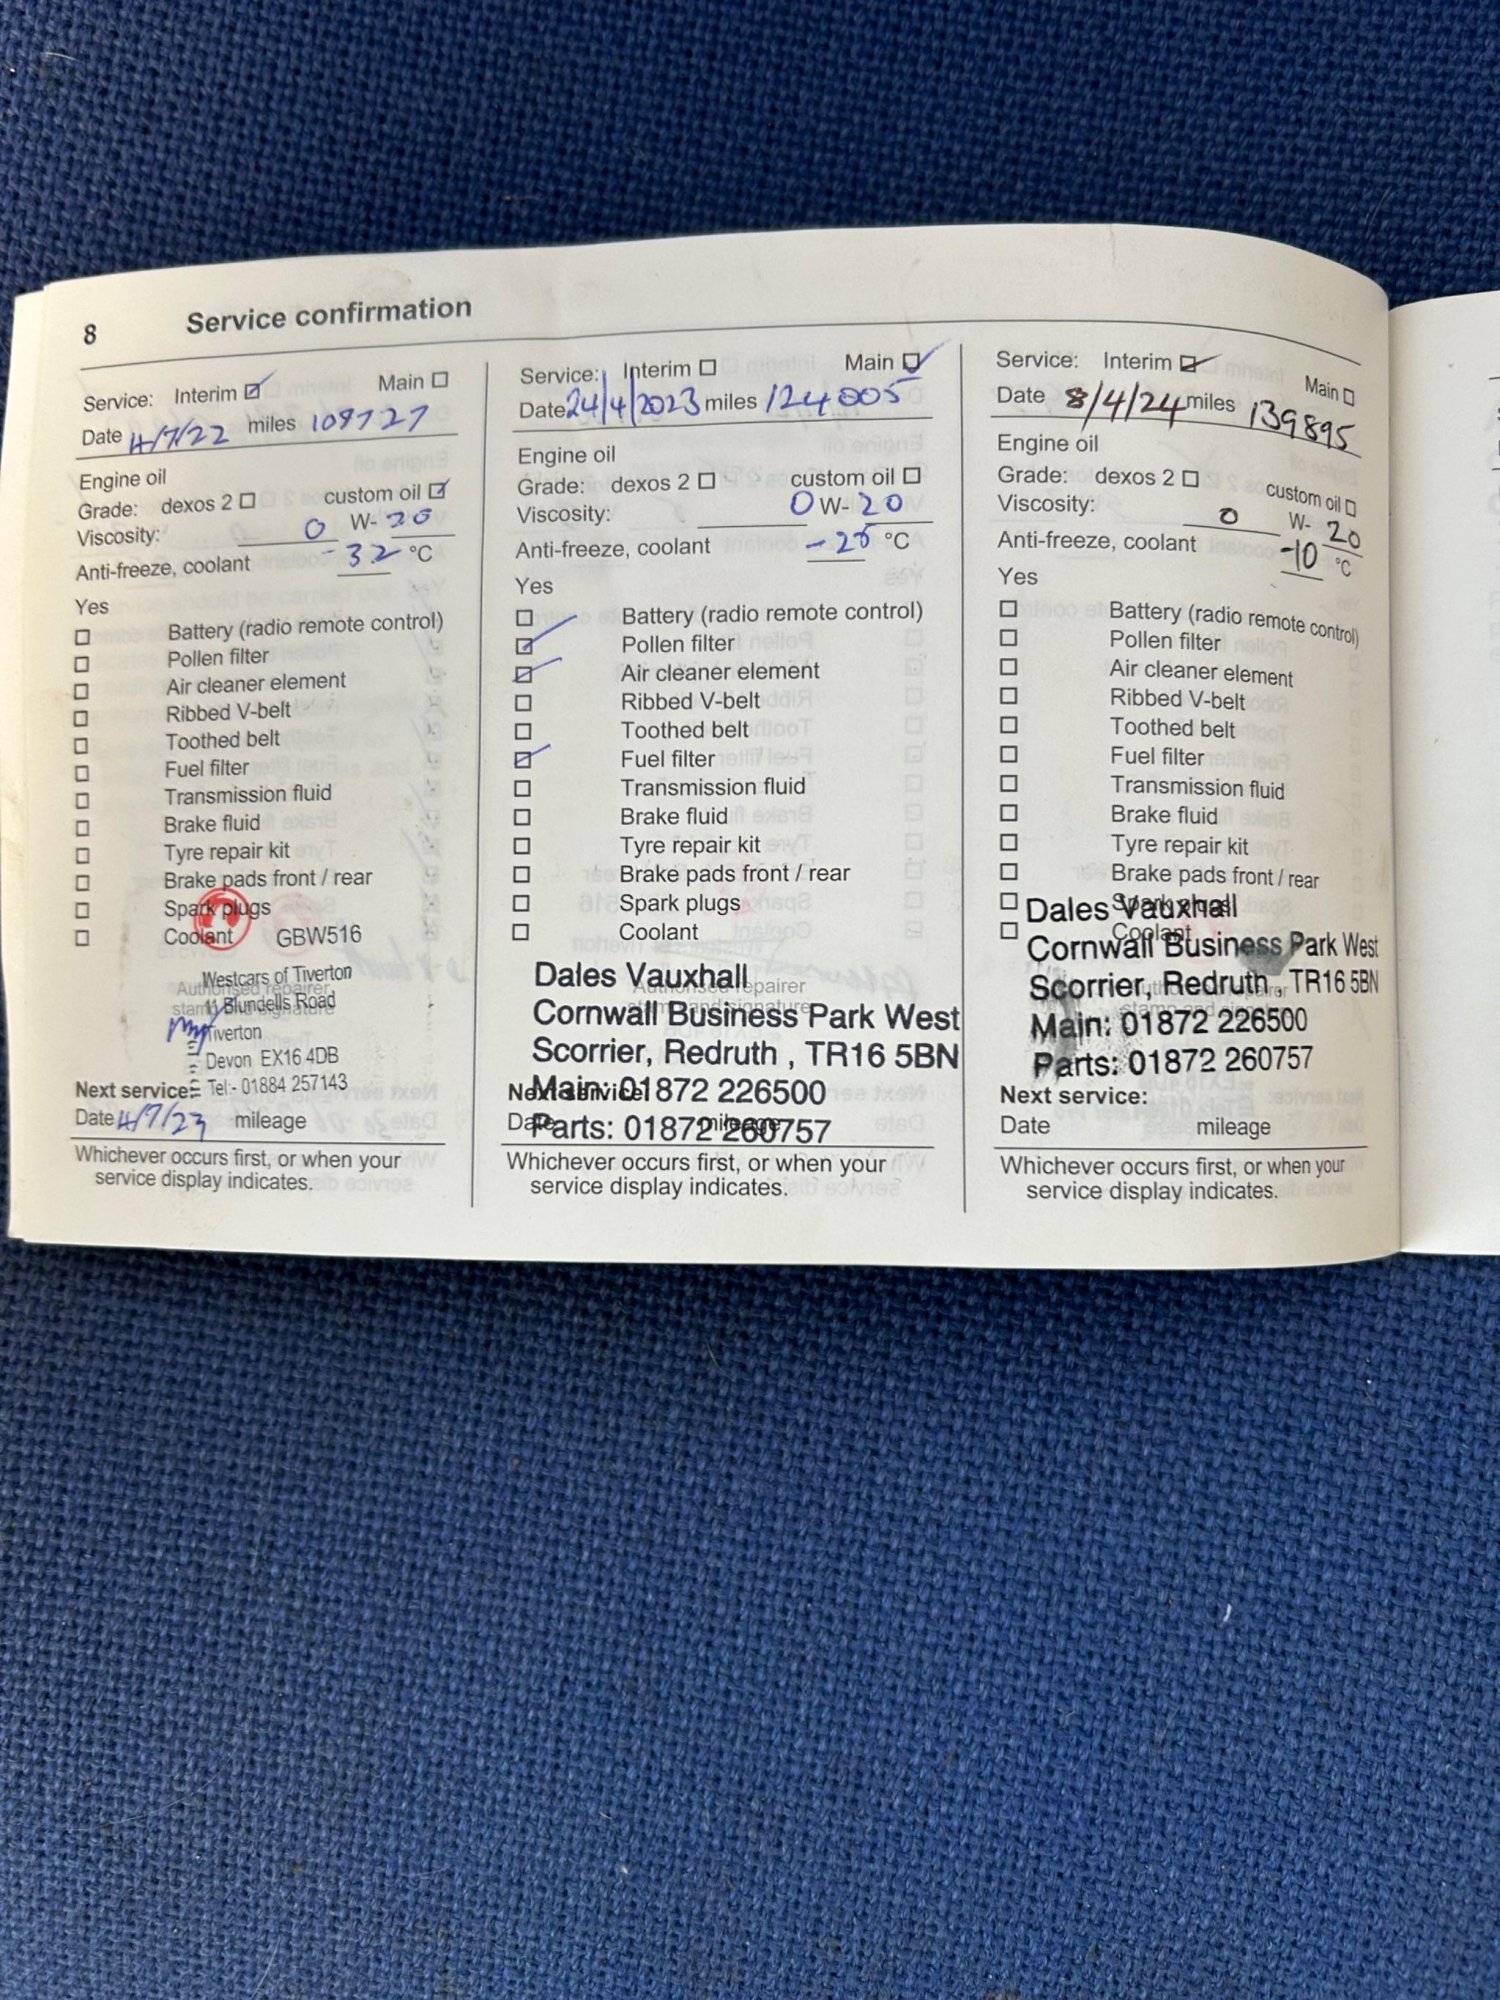 8 Service confirmation
Service: Interim Main
Date 4/7/22 miles 109727
Engine oil
Grade: dexos 2 custom oil
Viscosity: 0 W- 20
Anti-freeze, coolant -32 °C
Yes
Battery (radio remote control)
Pollen filter
Air cleaner element
Ribbed V-belt
Toothed belt
Fuel filter
Transmission fluid
Brake fluid
Tyre repair kit
Brake pads front / rear
Spark plugs
Coolant GBW516
Westcars of Tiverton
Authorised repairer
11 Blundells Road
stamp and signature
Tiverton
Devon EX16 4DB
Next service: Tel:- 01884 257143
Date 4/7/23 mileage
Whichever occurs first, or when your
service display indicates.
Service: Interim Main
Date 24/4/2023 miles 124005
Engine oil
Grade: dexos 2 custom oil
Viscosity: 0 W- 20
Anti-freeze, coolant °C
Yes
Battery (radio remote control)
Pollen filter
Air cleaner element
Ribbed V-belt
Toothed belt
Fuel filter
Transmission fluid
Brake fluid
Tyre repair kit
Brake pads front / rear
Spark plugs
Coolant
Dales Vauxhall
Authorised repairer
stamp and signature
Cornwall Business Park West
Scorrier, Redruth , TR16 5BN
Next service:
Main: 01872 226500
Date mileage
Parts: 01872 260757
Whichever occurs first, or when your
service display indicates.
Service: Interim Main
Date 8/4/24 miles 139895
Engine oil
Grade: dexos 2 custom oil
Viscosity: 0 W- 20
Anti-freeze, coolant -10 °C
Yes
Battery (radio remote control)
Pollen filter
Air cleaner element
Ribbed V-belt
Toothed belt
Fuel filter
Transmission fluid
Brake fluid
Tyre repair kit
Brake pads front / rear
Spark plugs
Dales Vauxhall
Coolant
Cornwall Business Park West
Scorrier, Redruth , TR16 5BN
Authorised repairer
stamp and signature
Main: 01872 226500
Parts: 01872 260757
Next service:
Date mileage
Whichever occurs first, or when your
service display indicates.